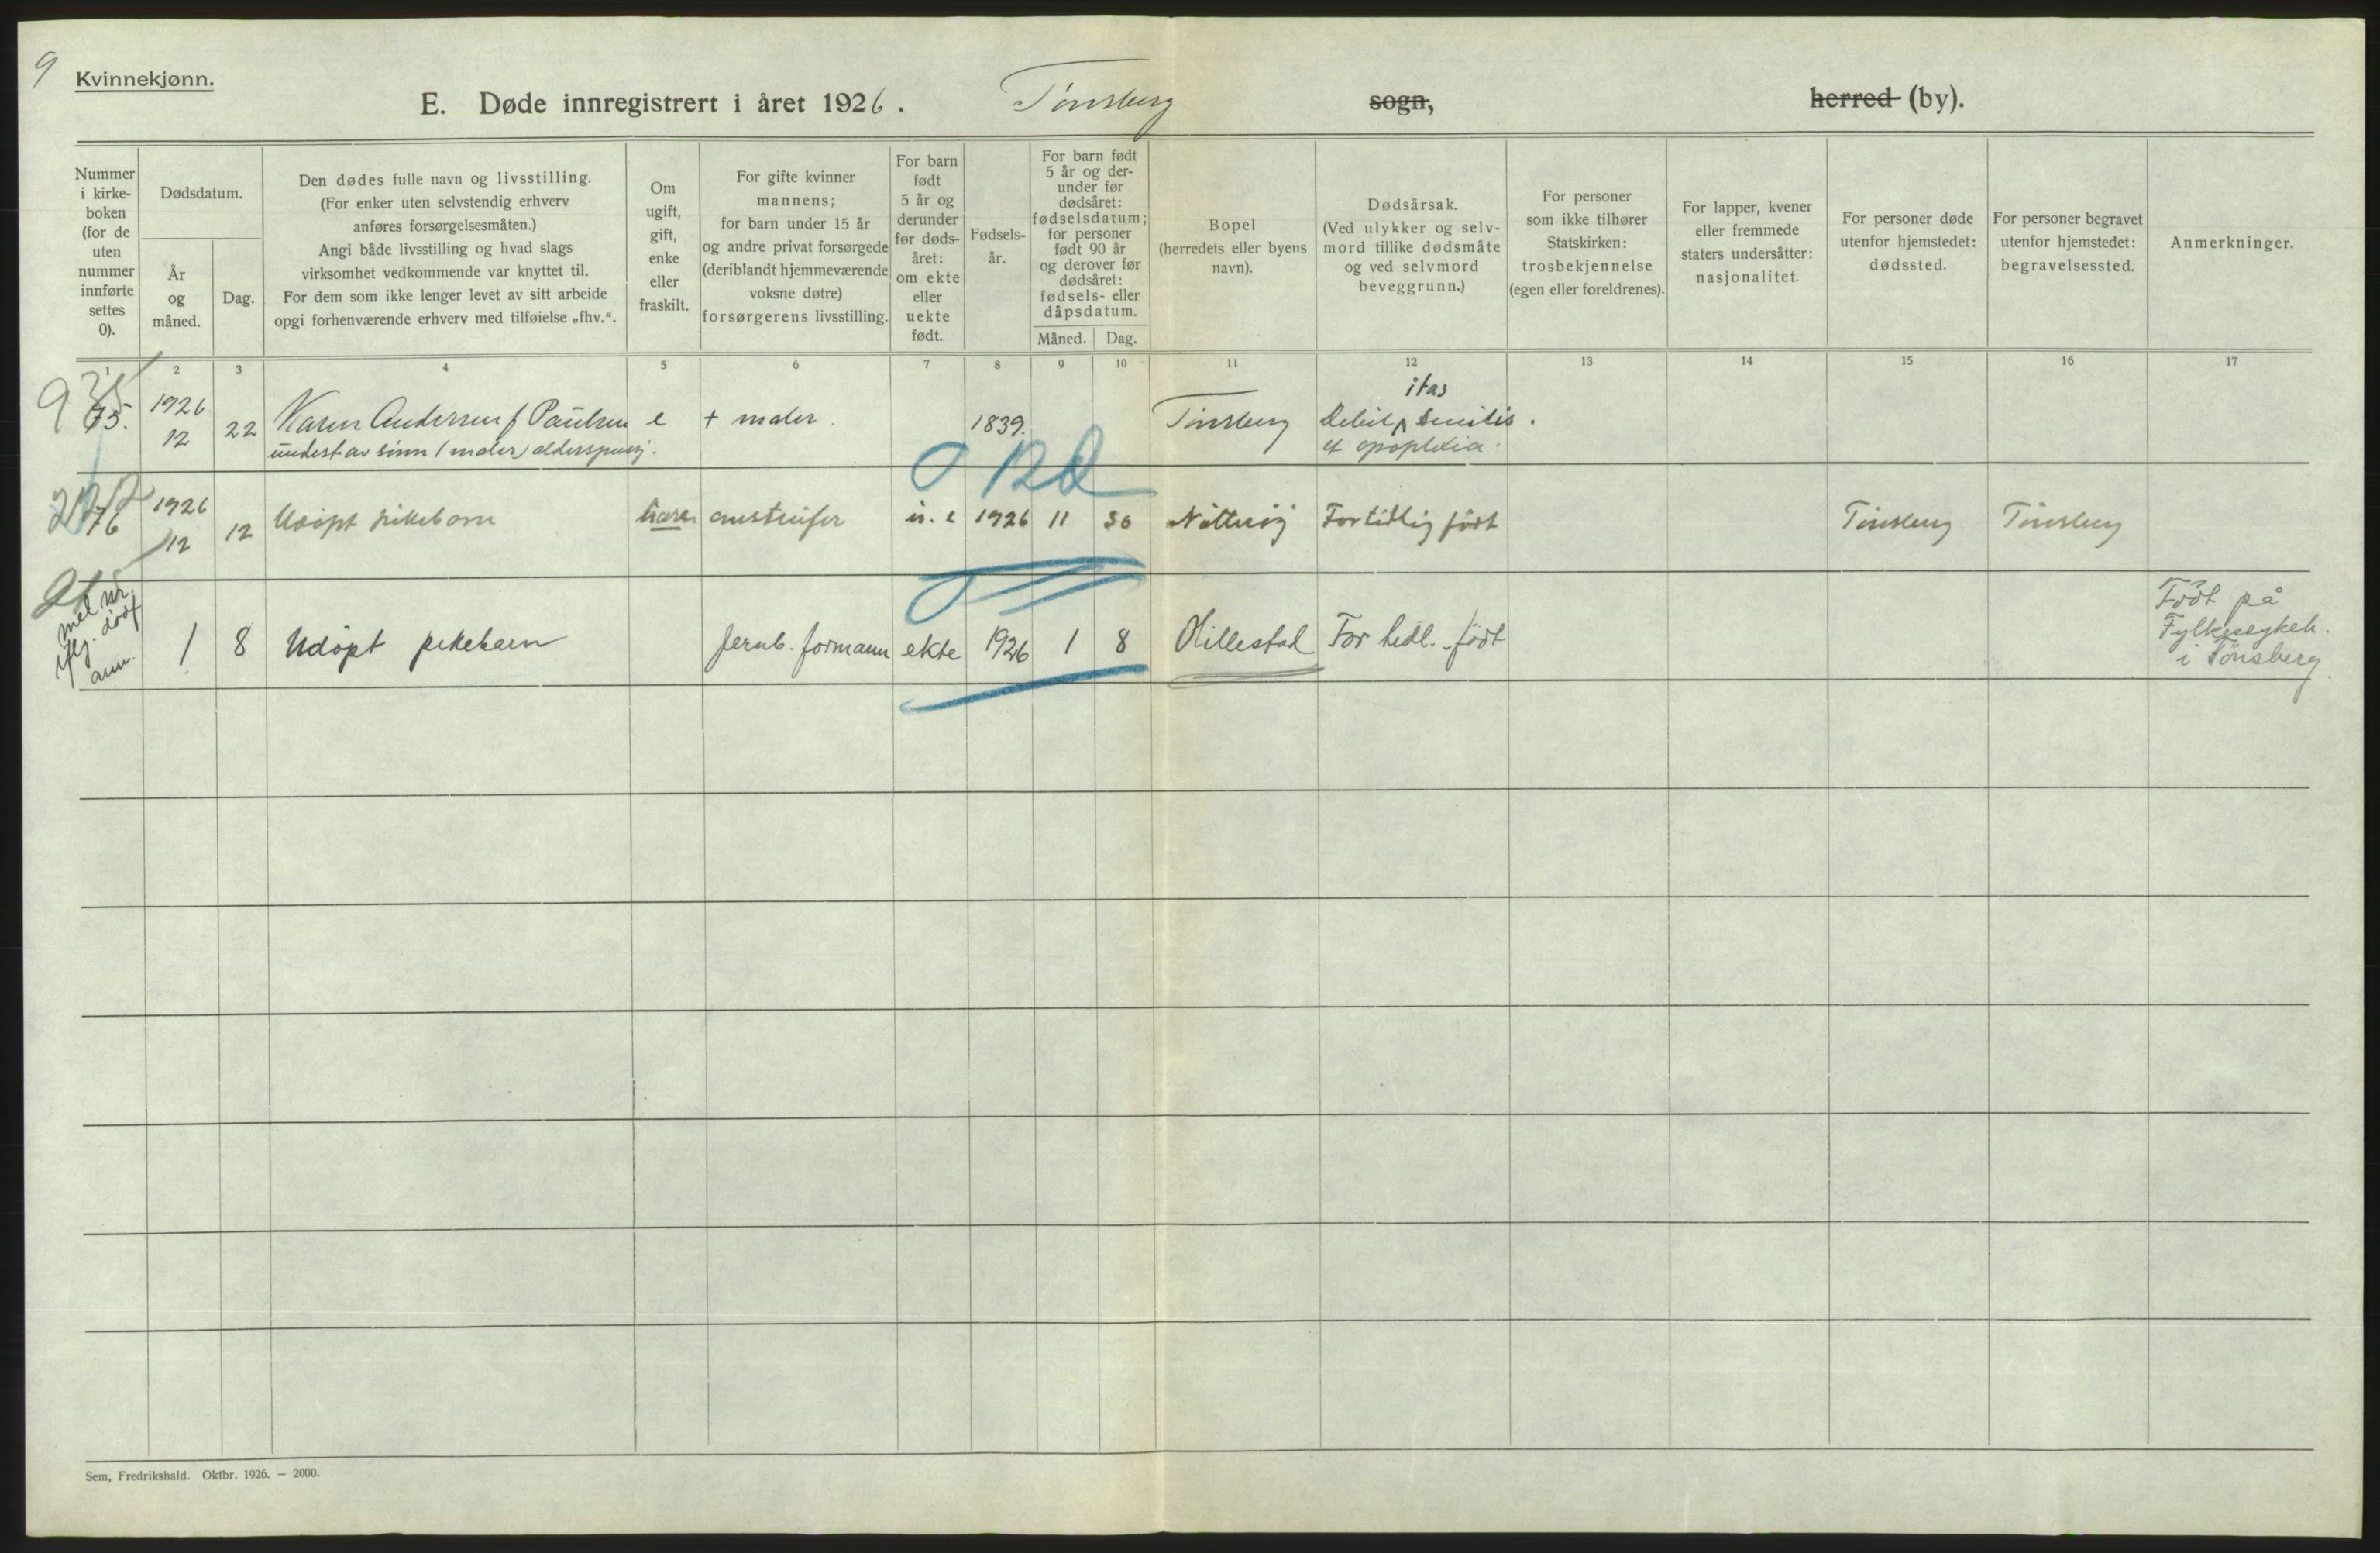 9
Kvinnekjønn.
E. Døde innregistrert i året 1926. Tønsberg sogn, herred (by).
Nummer i kirke-boken (for de uten nummer innførte settes 0).
Dødsdatum.
År og måned.
Dag.
Den dødes fulle navn og livsstilling.
(For enker uten selvstendig erhverv
anføres forsørgelsesmåten.)
Angi både livsstilling og hvad slags
virksomhet vedkommende var knyttet til.
For dem som ikke lenger levet av sitt arbeide
opgi forhenværende erhverv med tilføielse „fhv.“.
Om
ugift,
gift,
enke
eller
fraskilt.
For gifte kvinner
mannens;
for barn under 15 år
og andre privat forsørgede
(deriblandt hjemmeværende
voksne døtre)
forsørgerens livsstilling.
For barn
født
5 år og
derunder
før døds-
året:
om ekte
eller
uekte
født.
Fødsels-
år.
For barn født
5 år og der-
under før
dødsåret:
fødselsdatum;
for personer
født 90 år
og derover før
dødsåret:
fødsels- eller
dåpsdatum.
Måned. Dag.
Bopel
(herredets eller byens
navn).
Dødsårsak.
(Ved ulykker og selv-
mord tillike dødsmåte
og ved selvmord
beveggrunn.)
For personer
som ikke tilhører
Statskirken:
trosbekjennelse
(egen eller foreldrenes).
For lapper, kvener
eller fremmede
staters undersåtter:
nasjonalitet.
For personer døde
utenfor hjemstedet:
dødssted.
For personer begravet
utenfor hjemstedet:
begravelsessted.
Anmerkninger.
1 2 3 4 5 6 7 8 9 10 11 12 13 14 15 16 17
75. 1926 12 22 Karen Andersen f Paulsen e + maler. 1839. Tønsberg Debilitas senilis.
underst av sønn (maler) et apoplexia.
76 1926 12 12 Udøpt pikebarn barn u. e 1926 11 30 Nøtterøy For tidlig født Tønsberg Tønsberg
1 8 Udöpt pikebarn Jernb. formann ekte 1926 1 8 Hillestad For tidl. født
Født på
Fylkessykeh.
i Tönsberg.
Sem, Fredrikshald. Oktbr. 1926. – 2000.